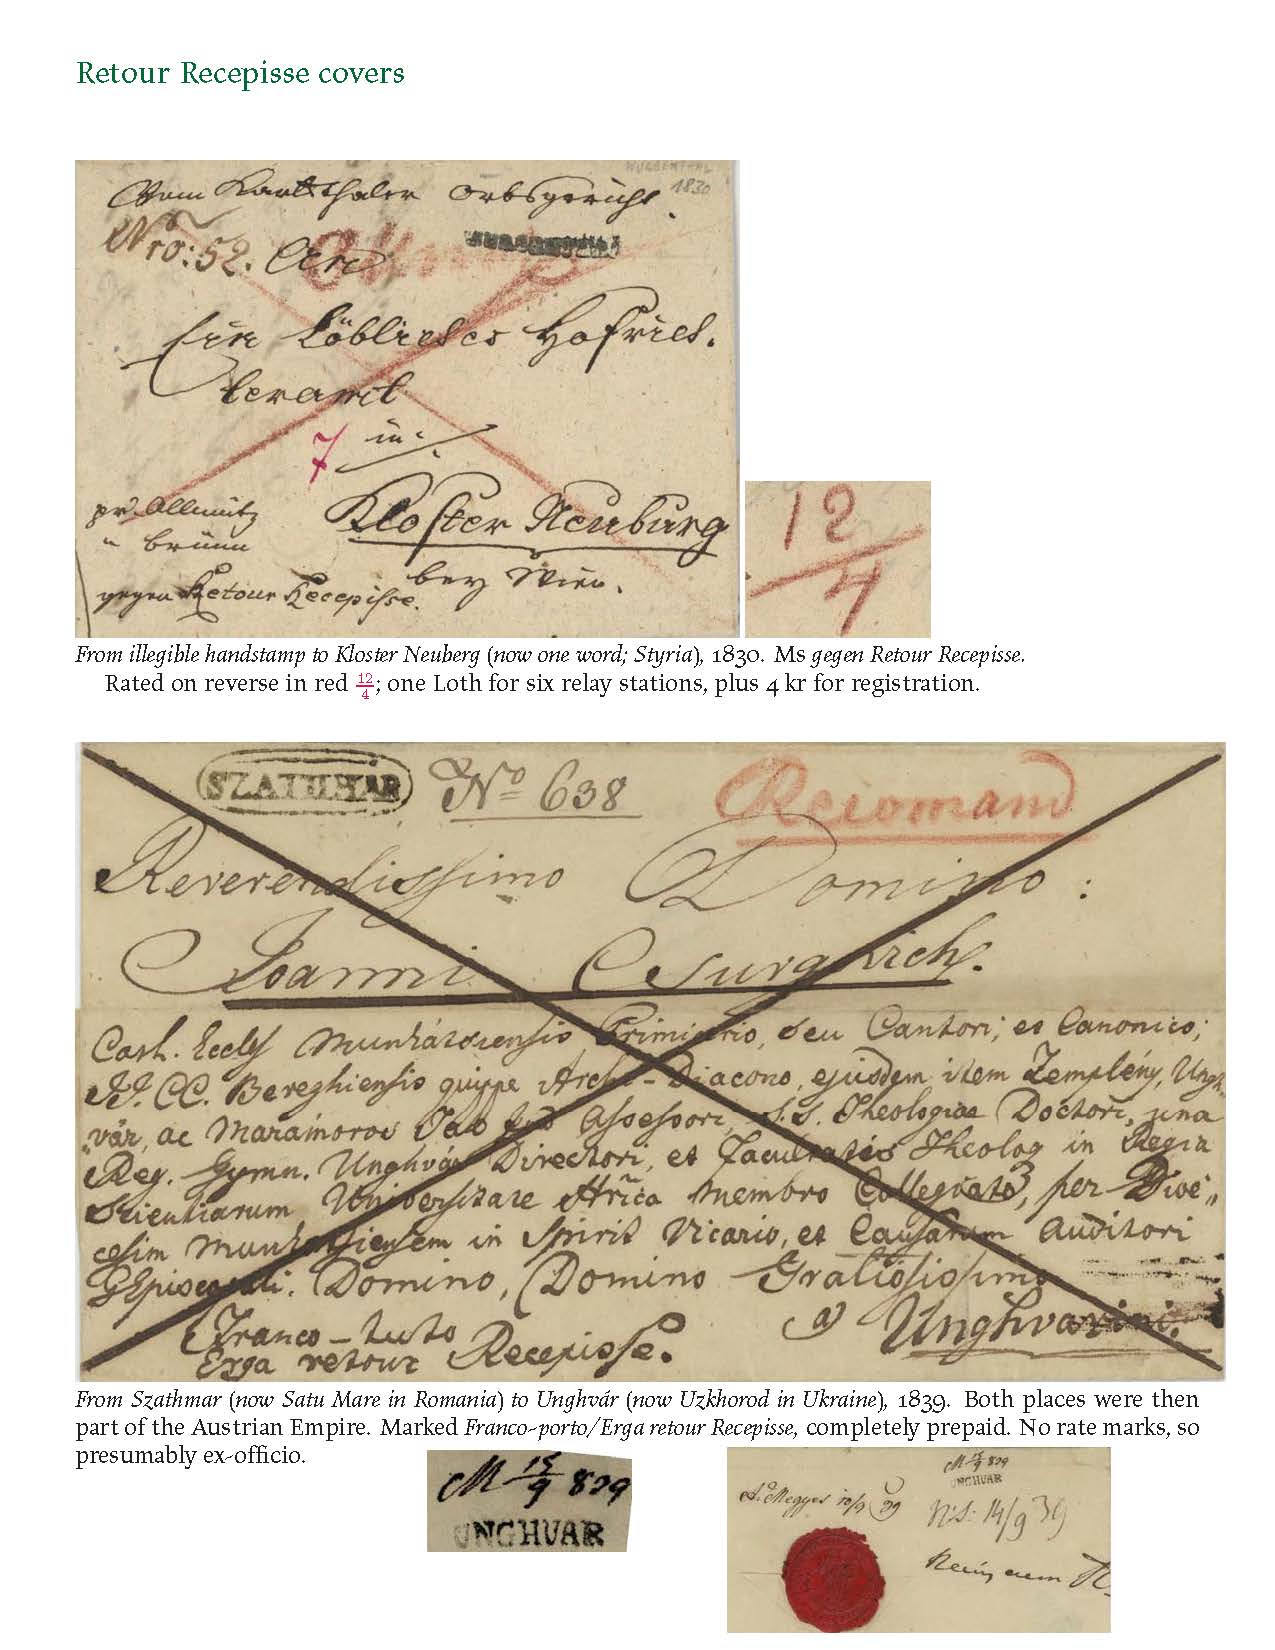 Retour Recepisse covers
1830
Nro: 52. An
Ein Löbliches Hofrich.
teramt
in
7
Kloster Neuburg
bey Wien.
pr. Ollmütz
" brünn
gegen Retour Recepisse.
12
4
From illegible handstamp to Kloster Neuberg (now one word; Styria), 1830. Ms gegen Retour Recepisse.
Rated on reverse in red 12/4; one Loth for six relay stations, plus 4 kr for registration.
SZATHMÁR No 638 Recomand
Reverendissimo Domino:
Joanni
Cath. Eccl Munkátsiensis Primicerio, seu Cantori; et Canonico;
Bereghiensis quippe Archi-Diacono, ejusdem item Zemplény, Ungh-
vár, ac Maramoros Assessori, S.S. Theologiae Doctori, una
Reg. Gymn. Unghvár Directori, et Facultatis Theolog in Regia
Scientiarum Universitate membro Collegiato, per Dioe„
cesim Munkatsiensem in Spirit Vicario, et Causarum Auditori
GEpiscopali. Domino, Domino Gratiosissimo
Franco-
Erga retour Recepisse.
a) Unghvarini.
From Szathmar (now Satu Mare in Romania) to Unghvár (now Uzkhorod in Ukraine), 1839. Both places were then
part of the Austrian Empire. Marked Franco-porto/Erga retour Recepisse, completely prepaid. No rate marks, so
presumably ex-officio.
M 15/9 839
UNGHVAR
M 15/9 839
UNGHVAR
10/9 39
14/9 39